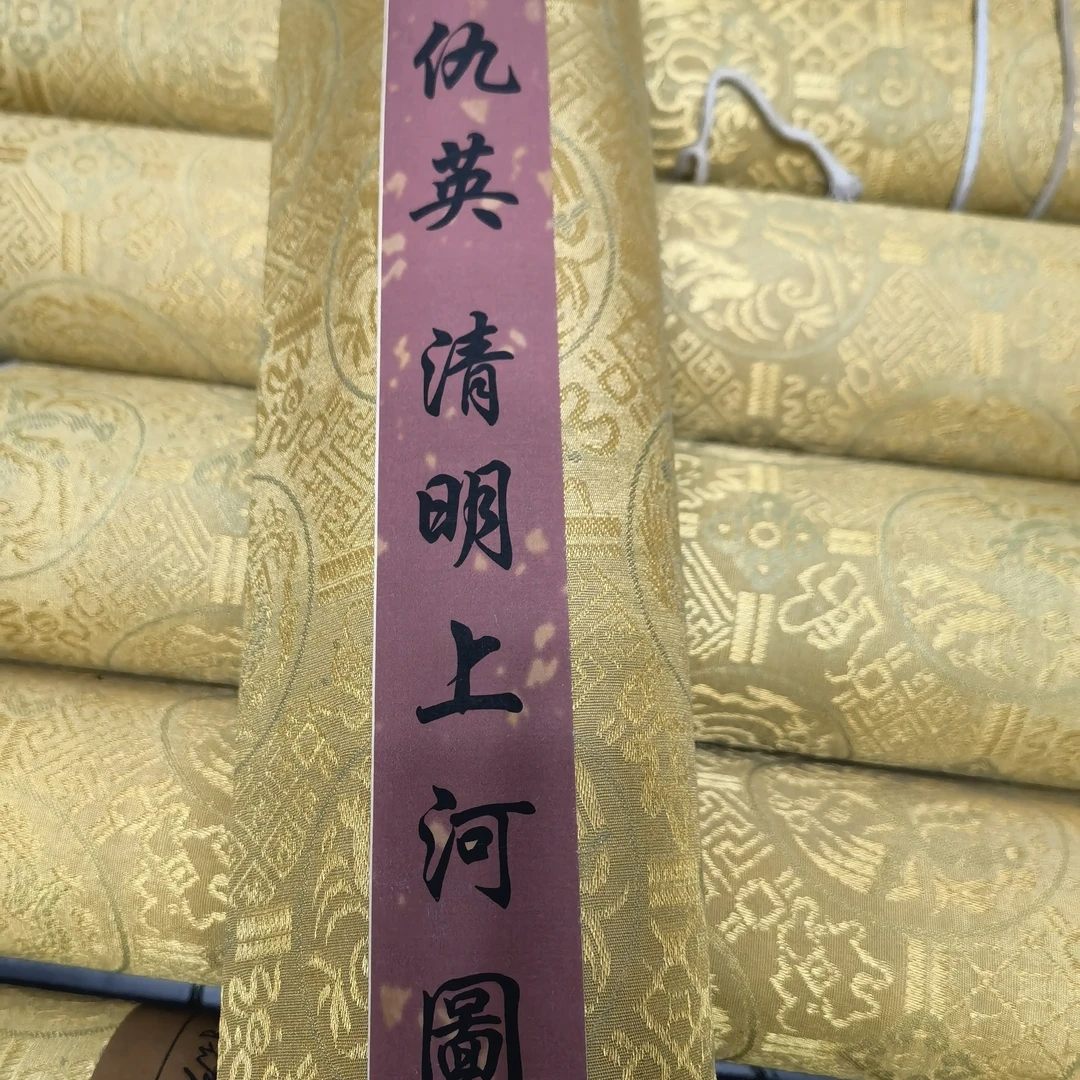 仇英 清明上河圖